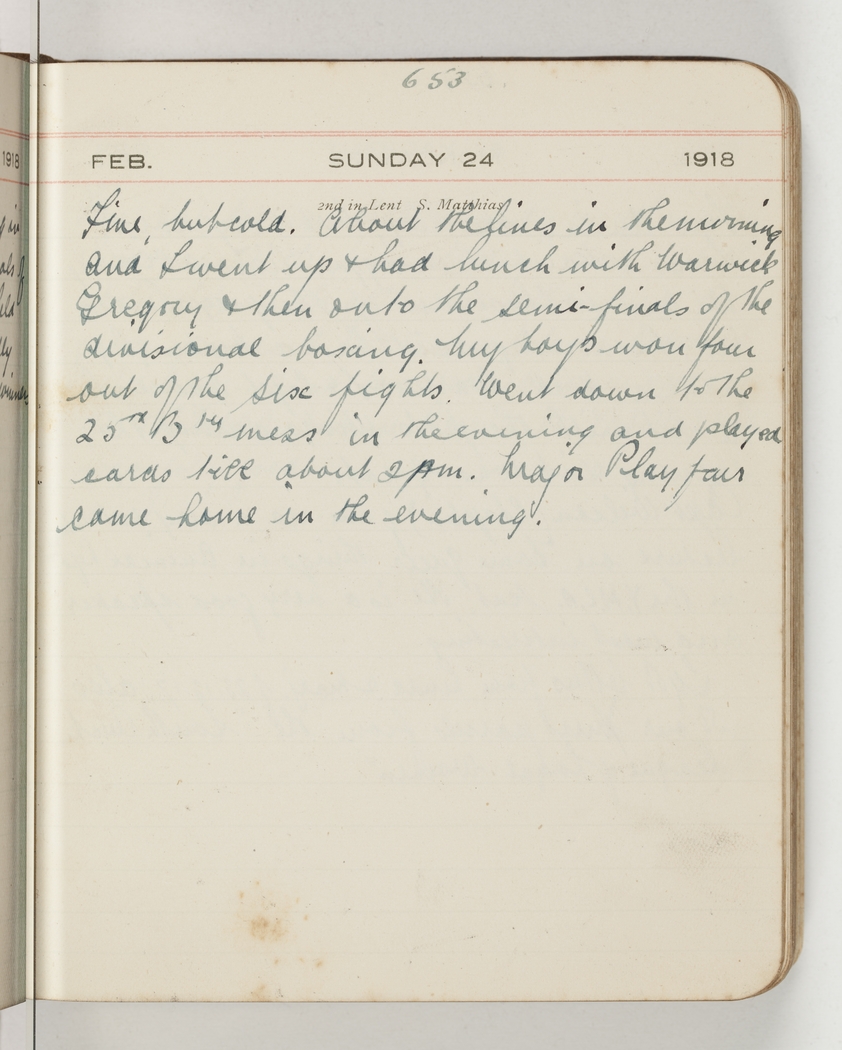 653
1918
FEB. SUNDAY 24 1918
2nd in Lent S. Matthias
Fine, but cold. About the lines in the morning
and I went up & had lunch with Warwick
Gregory & then onto the semi-finals of the
divisional boxing. My boys won four
out of the six fights. Went down to the
25th Bty mess in the evening and played
cards till about 2pm. Major Playfair
came home in the evening.